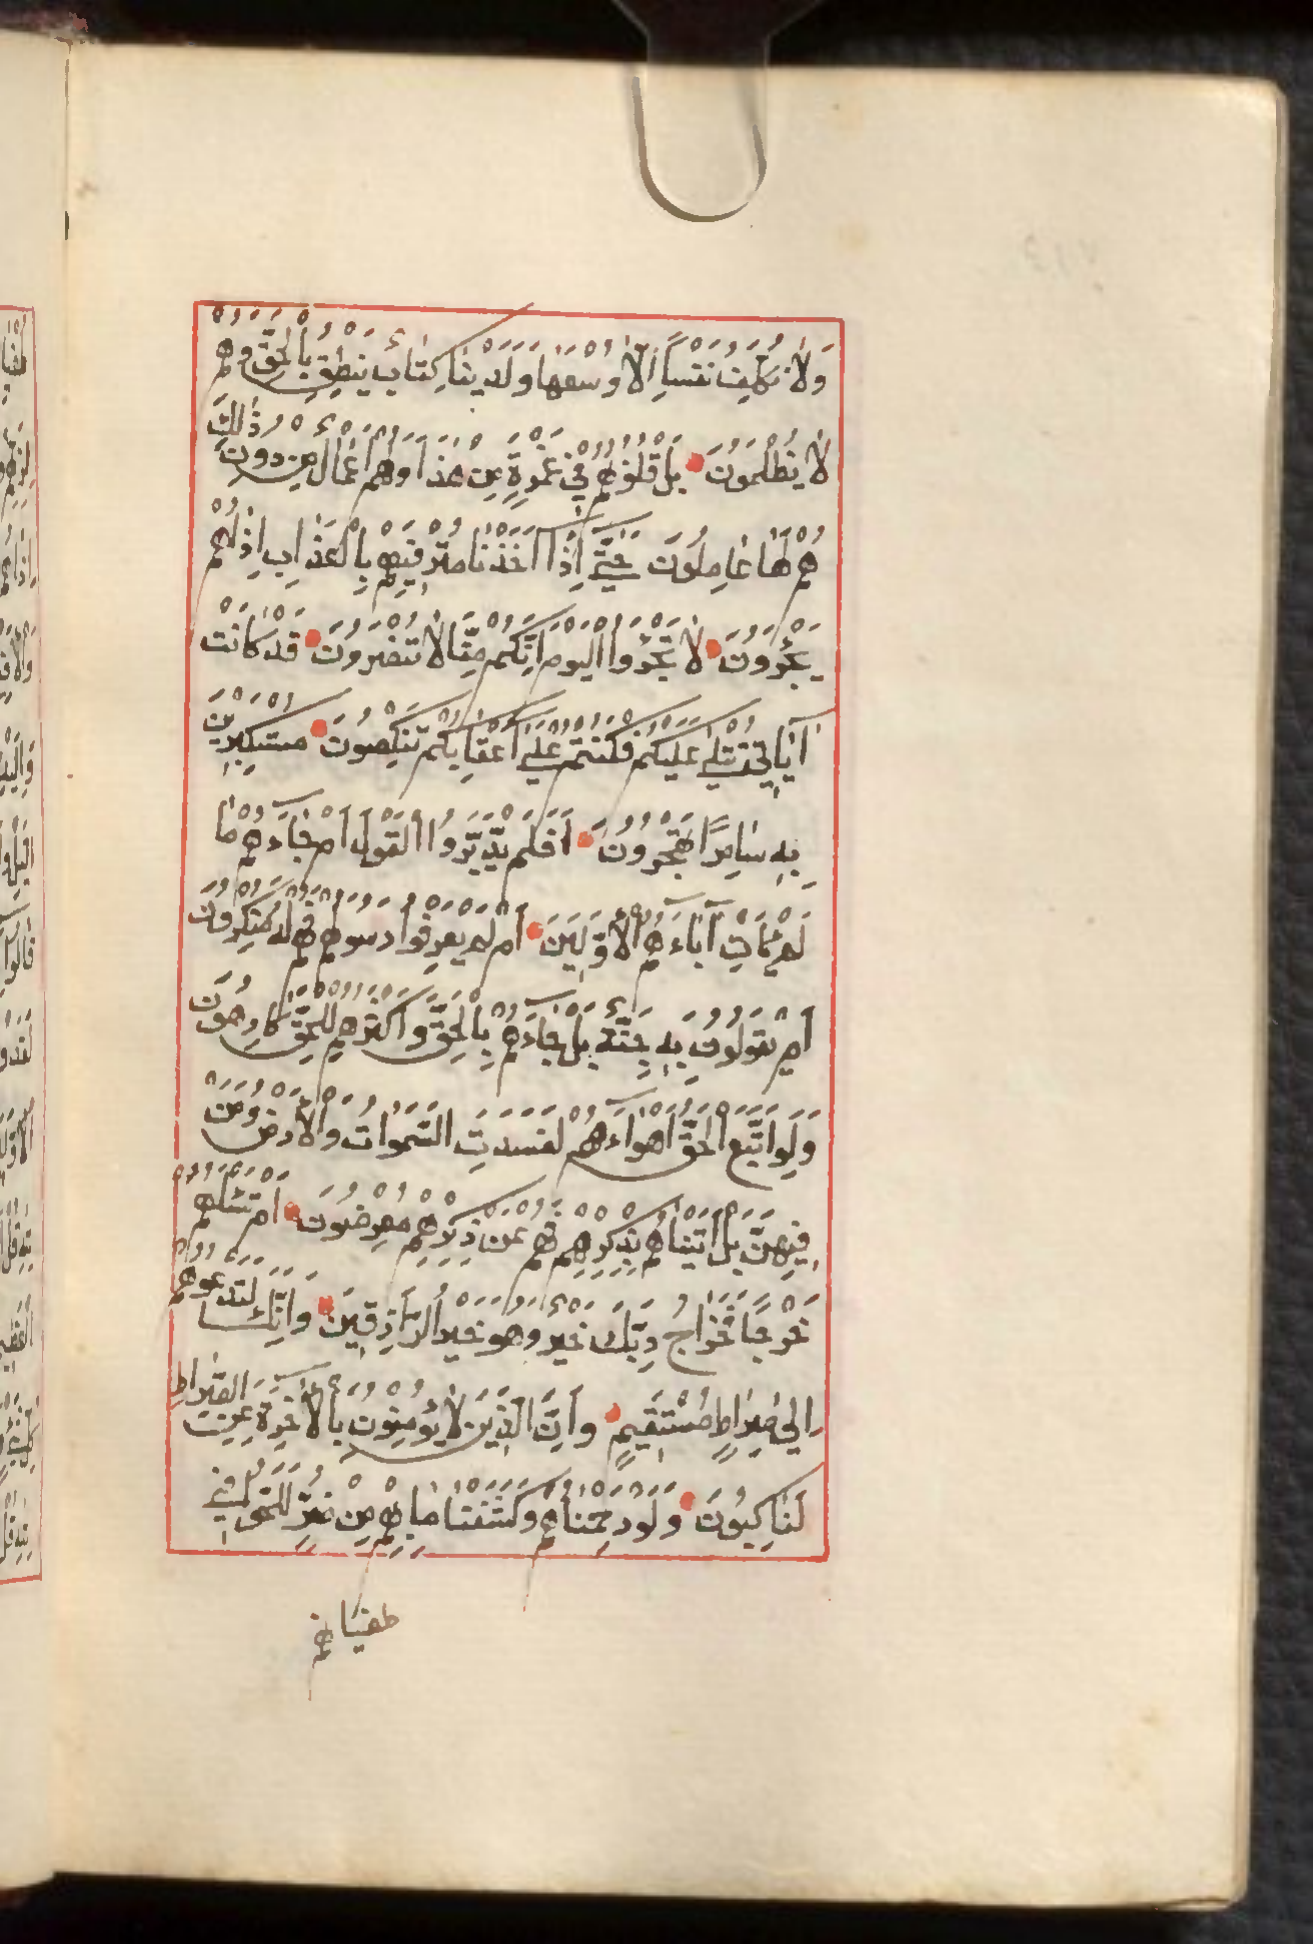 وَلَا نُكَلِّفُ نَفْسًا اِلَّا وُسْعَهَا وَلَدَيْنَا كِتَابٌ يَنْطِقُ بِالْحَقِّ وَهُمْ
لَا يُظْلَمُونَ بَلْ قُلُوبُهُمْ فِي غَمْرَةٍ مِنْ هٰذَا وَلَهُمْ اَعْمَالٌ مِنْ دُونِ ذٰلِكَ
هُمْ لَهَا عَامِلُونَ حَتّٰى اِذَا اَخَذْنَا مُتْرَفِيهِمْ بِالْعَذَابِ اِذَا هُمْ
يَجْـَٔرُونَ لَا تَجْـَٔرُوا الْيَوْمَ اِنَّكُمْ مِنَّا لَا تُنْصَرُونَ قَدْ كَانَتْ
اٰيَاتِي تُتْلٰى عَلَيْكُمْ فَكُنْتُمْ عَلٰى اَعْقَابِكُمْ تَنْكِصُونَ مُسْتَكْبِرِينَ
بِهِ سَامِرًا تَهْجُرُونَ اَفَلَمْ يَدَّبَّرُوا الْقَوْلَ اَمْ جَآءَهُمْ مَا
لَمْ يَأْتِ اٰبَآءَهُمُ الْاَوَّلِينَ اَمْ لَمْ يَعْرِفُوا رَسُولَهُمْ فَهُمْ لَهُ مُنْكِرُونَ
اَمْ يَقُولُونَ بِهِ جِنَّةٌ بَلْ جَآءَهُمْ بِالْحَقِّ وَاَكْثَرُهُمْ لِلْحَقِّ كَارِهُونَ
وَلَوِ اتَّبَعَ الْحَقُّ اَهْوَآءَهُمْ لَفَسَدَتِ السَّمٰوَاتُ وَالْاَرْضُ وَمَنْ
فِيهِنَّ بَلْ اَتَيْنَاهُمْ بِذِكْرِهِمْ فَهُمْ عَنْ ذِكْرِهِمْ مُعْرِضُونَ اَمْ تَسْـَٔلُهُمْ
خَرْجًا فَخَرَاجُ رَبِّكَ خَيْرٌ وَهُوَ خَيْرُ الرَّازِقِينَ وَاِنَّكَ لَتَدْعُوهُمْ
اِلٰى صِرَاطٍ مُسْتَقِيمٍ وَاِنَّ الَّذِينَ لَا يُؤْمِنُونَ بِالْاٰخِرَةِ عَنِ الصِّرَاطِ
لَنَاكِبُونَ وَلَوْ رَحِمْنَاهُمْ وَكَشَفْنَا مَا بِهِمْ مِنْ ضُرٍّ لَلَجُّوا فِي
طغيانهم